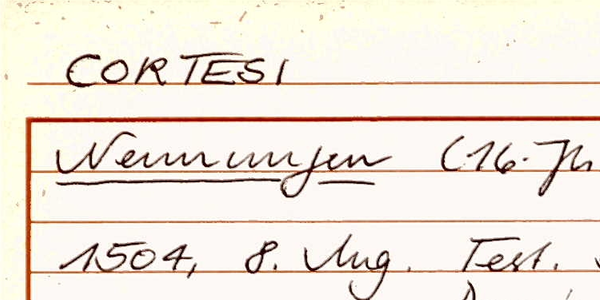 CORTESI
Nennungen (16. Jh
1504, 8. Aug. Test.